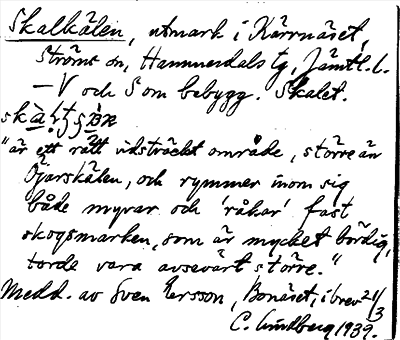 Skalkälen, utmark i Kärrnäset,
Ströms sn, Hammerdals tg, Jämtl. l.
– V och S om bebygg. Skalet.
"är ett rätt vidsträckt område, större än
Öjarskälen, och rymmer inom sig
både myrar och 'råkar' fast
skogsmarken, som är mycket bördig,
torde vara avsevärt större."
Medd. av Sven Ersson, Bonäset, i brev 21/3
C. Lindberg 1939.